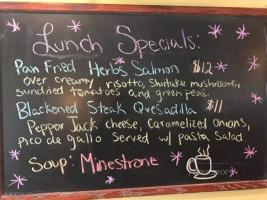 Lunch Specials:
Pan Fried Herbs Salmon $12
over creamy risotto, shiitake mushrooms,
sundried tomatoes and green peas.
Blackened Steak Quesadilla $11
Pepper Jack cheese, caramelized onions,
pico de gallo served w/ pasta salad
Soup: Minestrone